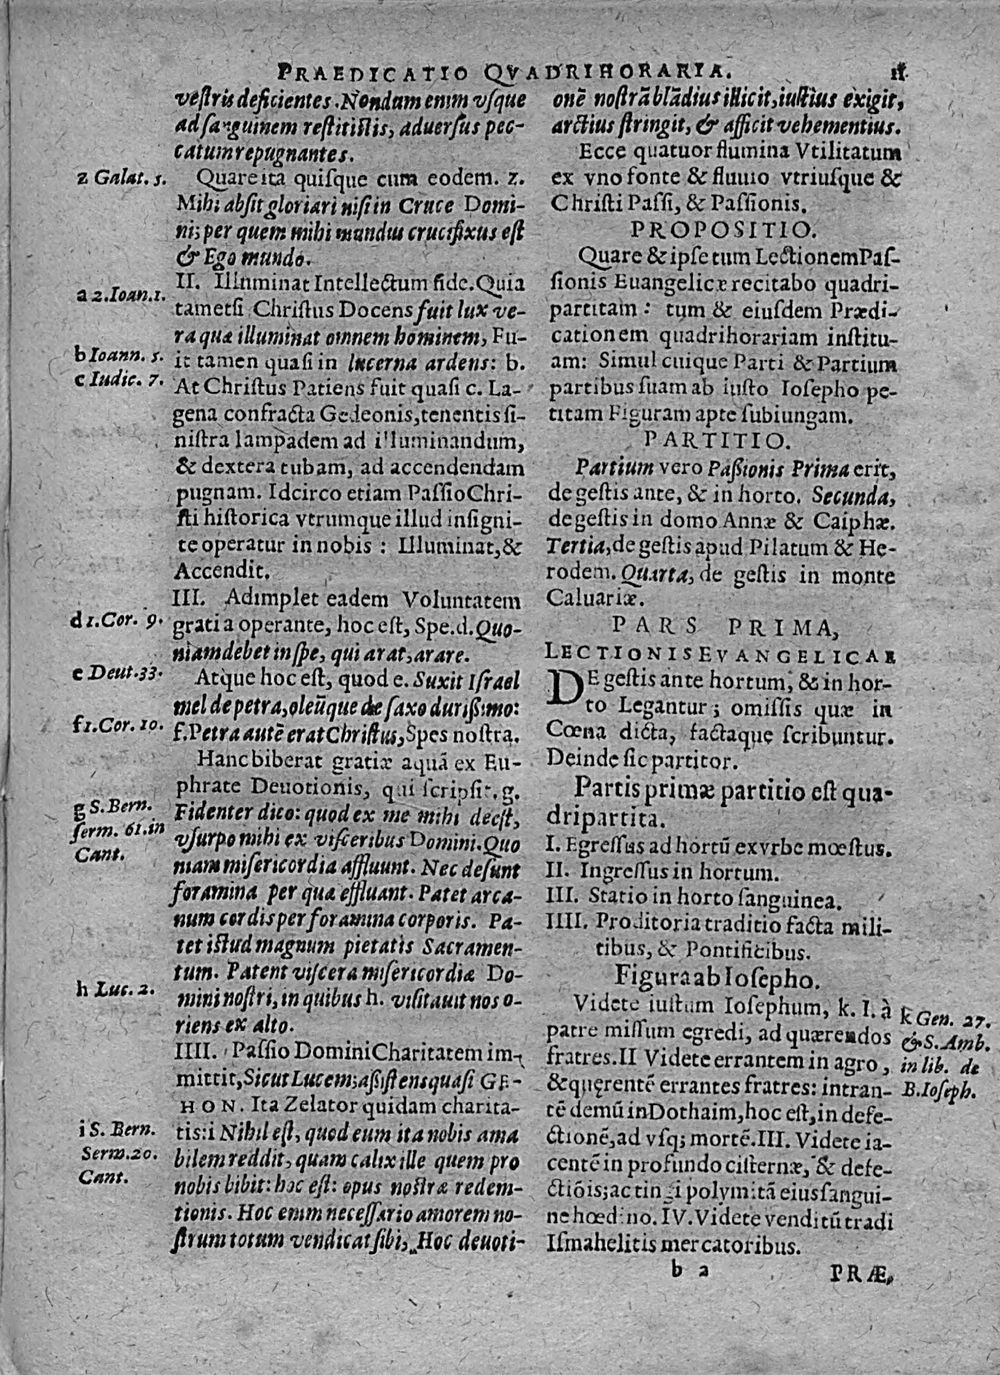 PRAEDICATIO QVADRIHORARIA. 11
vestris deficientes. Nondum enim vsque
ad sanguinem restitistis, aduersus pec-
catum repugnantes.
z Galat. 5.
Quare ita quisque cum eodem. z.
Mihi absit gloriari nisi in Cruce Domi-
ni; per quem mihi mundus crucifixus est
& Ego mundo.
II. Illuminat Intellectum fide. Quia
a 2. Ioan. 1.
tametsi Christus Docens fuit lux ve-
ra quæ illuminat omnem hominem, Fu-
b Ioann. 5.
it tamen quasi in lucerna ardens: b.
c Iudic. 7.
At Christus Patiens fuit quasi c. La-
gena confracta Gedeonis, tenentis si-
nistra lampadem ad illuminandum,
& dextera tubam, ad accendendam
pugnam. Idcirco etiam Passio Chri-
sti historica vtrumque illud insigni-
te operatur in nobis: Illuminat, &
Accendit.
III. Adimplet eadem Voluntatem
d 1. Cor. 9.
gratia operante, hoc est, Spe. d. Quo-
niam debet in spe, qui arat, arare.
e Deut. 33.
Atque hoc est, quod e. Suxit Israel
mel de petra, oleūque de saxo durissimo:
f 1. Cor. 10.
f. Petra autē erat Christus, Spes nostra.
Hanc biberat gratiæ aquā ex Eu-
phrate Deuotionis, qui scripsit. g.
g S. Bern.
serm. 61. in
Cant.
Fidenter dico: quod ex me mihi deest,
vsurpo mihi ex visceribus Domini. Quo
niam misericordia affluunt. Nec desunt
foramina per quæ effluant. Patet arca-
num cordis per foramina corporis. Pa-
tet istud magnum pietatis Sacramen-
tum. Patent viscera misericordiæ Do-
h Luc. 2.
mini nostri, in quibus h. visitauit nos o-
riens ex alto.
IIII. Passio Domini Charitatem im-
mittit, Sicut Lucem; assistens quasi GE-
HON. Ita Zelator quidam charita-
i S. Bern.
Serm. 20.
Cant.
tis: i Nihil est, quod eum ita nobis ama
bilem reddit, quam calix ille quem pro
nobis bibit: hoc est: opus nostræ redem-
tionis. Hoc enim necessario amorem no-
strum totum vendicat sibi, Hoc deuoti-
onē nostrā blādius illicit, iustius exigit,
arctius stringit, & afficit vehementius.
Ecce quatuor flumina Vtilitatum
ex vno fonte & fluuio vtriusque &
Christi Passi, & Passionis.
PROPOSITIO.
Quare & ipse tum Lectionem Pas-
sionis Euangelicæ recitabo quadri-
partitam: tum & eiusdem Prædi-
cationem quadrihorariam institu-
am: Simul cuique Parti & Partium
partibus suam ab iusto Iosepho pe-
titam Figuram apte subiungam.
PARTITIO.
Partium vero Passionis Prima erit,
de gestis ante, & in horto. Secunda,
de gestis in domo Annæ & Caiphæ.
Tertia, de gestis apud Pilatum & He-
rodem. Quarta, de gestis in monte
Caluariæ.
PARS PRIMA,
LECTIONIS EVANGELICAE
DE gestis ante hortum, & in hor-
to Legantur; omissis quæ in
Cœna dicta, factaque scribuntur.
Deinde sic partitor.
Partis primæ partitio est qua-
dripartita.
I. Egressus ad hortū ex vrbe mœstus.
II. Ingressus in hortum.
III. Statio in horto sanguinea.
IIII. Proditoria traditio facta mili-
tibus, & Pontificibus.
Figura ab Iosepho.
Videte iustum Iosephum, k. I. à
k Gen. 27.
& S. Amb.
in lib. de
B. Ioseph.
patre missum egredi, ad quærendos
fratres. II Videte errantem in agro,
& quęrentē errantes fratres: intran-
tē demū in Dothaim, hoc est, in defe-
ctionē, ad vsq; mortē. III. Videte ia-
centē in profundo cisternæ, & defe-
ctiōis; ac tingi polymitā eius sangui-
ne hœdino. IV. Videte venditū tradi
Ismahelitis mercatoribus.
b 2 PRÆ,